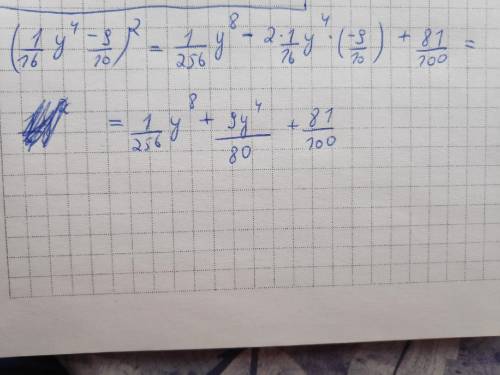 (1/16 y⁴ -9/10)² = 1/256 y⁸ - 2·1/16 y⁴·(-9/10) + 81/100 =
= 1/256 y⁸ + 9y⁴/80 + 81/100